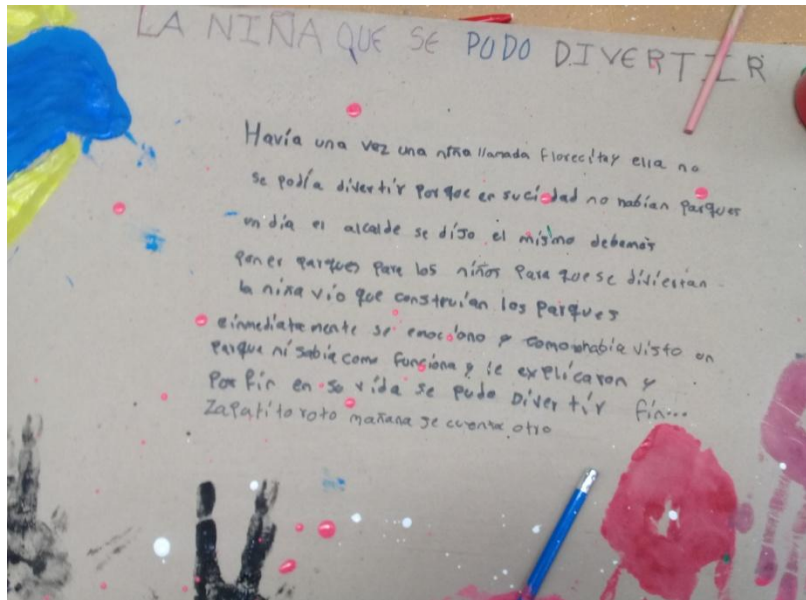 LA NIÑA QUE SE PUDO DIVERTIR
Havía una vez una niña llamada Florecita y ella no
se podía divertir porque en su ciudad no habían parques
un día el alcalde se dijo el mismo debemos
poner parques para los niños para que se diviertan
la niña vio que construían los parques
e inmediatamente se emociono y como no había visto un
parque ni sabia como funciona y le explicaron y
por fin en su vida se pudo Divertir fin...
Zapatito roto mañana se cuenta otro